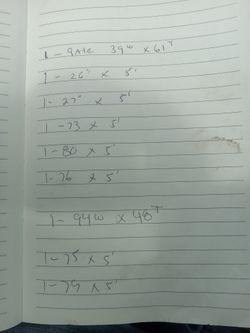 1 - gate 39w x 61T
1 - 26" x 5'
1 - 27" x 5'
1 - 73 x 5'
1 - 80 x 5'
1 - 76 x 5'
1 - 94w x 48T
1 - 75 x 5'
1 - 75 x 5'